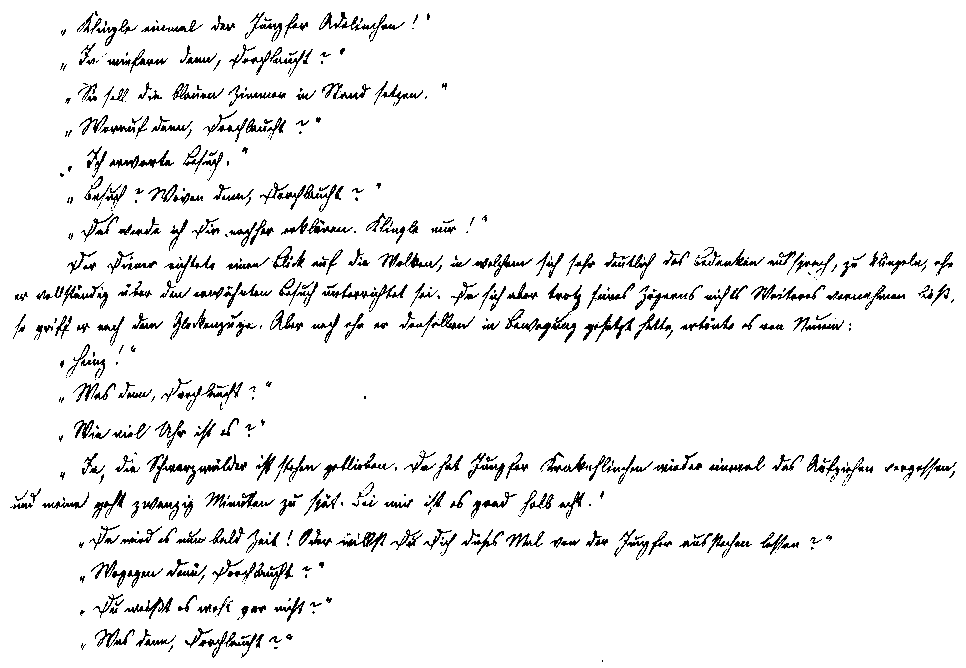 „Klingle einmal der Jungfer Adelinchen!“
„In wiefern denn, Durchlaucht?“
„Sie soll die blauen Zimmer in Stand setzen.“
„Worauf denn, Durchlaucht?“
„Ich erwarte Besuch.“
„Besuch? Woven denn, Durchlaucht?“
„Das werde ich Dir nachher erklären. Klingle nur!“
Der Diener richtete einen Blick auf die Wolken, in welchem sich sehr deutlich das Bedenken aussprach, zu klingeln, ehe
er vollständig über den erwähnten Besuch unterrichtet sei. Da sich aber trotz seines Zögerns nichts Weiteres vernehmen ließ,
so griff er nach dem Glockenzuge. Aber noch ehe er denselben in Bewegung gesetzt hatte, ertönte es von Neuem:
„Heinz!“
„Was denn, Durchlaucht?“
„Wie viel Uhr ist es?“
„Ja, die Schwarzwälder ist stehen geblieben. Da hat Jungfer Krakehlinchen wieder einmal das Aufziehen vergessen,
und meine geht zwanzig Minuten zu spät. Bei mir ist es grad halb acht.“
„Da wird es nun bald Zeit! Oder willst Du Dich dieses Mal von der Jungfer ausstechen lassen?“
„Wogegen denn, Durchlaucht?“
„Du weißt es wohl gar nicht?“
„Was denn, Durchlaucht?“